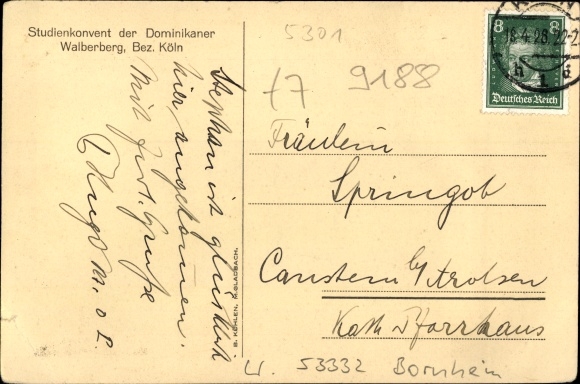 Studienkonvent der Dominikaner
Walberberg, Bez. Köln
5301
t7 9188
8 8
Deutsches Reich
Stephan ist glücklich
hier angekommen.
Mit frdl. Gruße
P. Hugo M. O. P.
B. KÜHLEN, M. GLADBACH.
Fräulein
Springob
Canstein b/ Arolsen
Kath Pfarrhaus
W. 53332 Bornheim